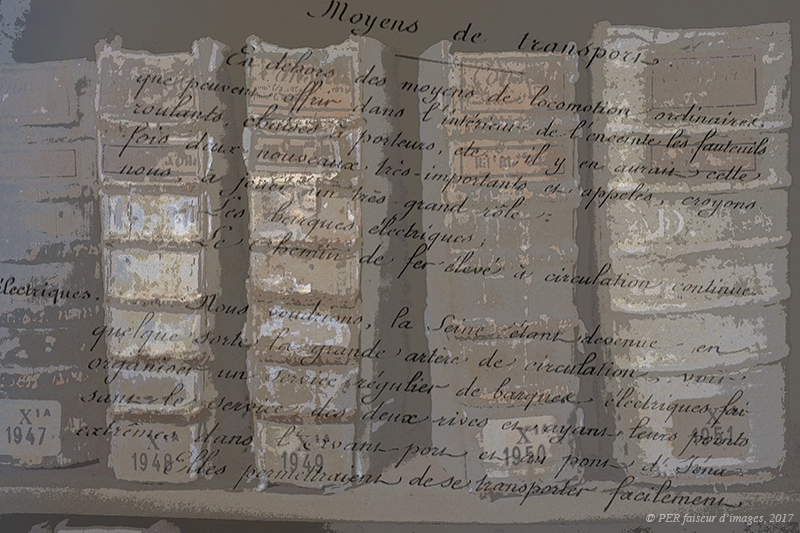 Moyens de transport.
En dehors des moyens de locomotion ordinaires,
que peuvent offrir dans l'intérieur de l'enceinte les fauteuils
roulants, chaises à porteurs, etc. il y en aurait cette
fois deux nouveaux, très-importants et appelés, croyons
nous à jouer un très grand rôle :
Les barques électriques ;
Le chemin de fer élevé à circulation continue
électriques.
Nous voudrions, la Seine étant devenue en
quelque sorte la grande artère de circulation, voir
organiser un service régulier de barques électriques fai
sant le service des deux rives et ayant leurs points
extrêmes dans l'avant-port et au pont d'Iéna
Elles permettraient de se transporter facilement
X1A
1947
1948
X1A
1949
X1A
1950
X
1951
© PER faiseur d'images, 2017